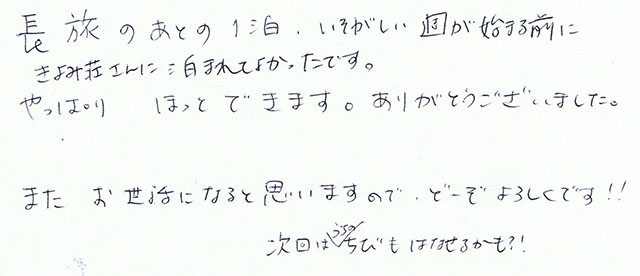 長旅のあとの1泊、いそがしい週が始まる前に
きよみ荘さんに泊まれてよかったです。
やっぱり ほっとできます。ありがとうございました。
また お世話になると思いますので、どーぞよろしくです!!
次回は ちびもはなせるかも?!